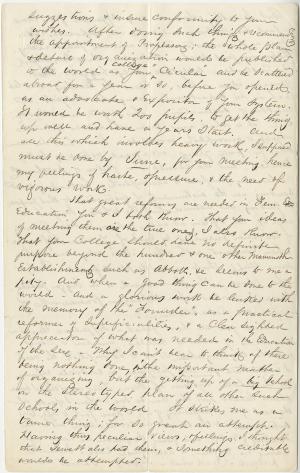 suggestions & insure conformity to your
wishes. After doing such things & recommending
the appointment of Professors; the whole plan
& detail of organization would be published
college
to the world as your Circular and be scattered
abroad for a year or so, before you opened
as an advocate & expositor of your System.
It would be worth 200 pupils, to get the thing
up well and have a years start. And
all this which involves heavy work, I suppose
must be done by June, for your meeting. hence
my feelings of haste, & pressure, & the need of
vigorous work.
That great reforms are needed in Fem
Education you & I both know. That your ideas
of meeting them are the true ones, I also know.
That your College should have no definite
purpose beyond the hundred & one other mammoth
establishments such as Abbott, &c seems to me a
pity. And when a good thing can be done to the
world and a glorious work be linked with
the memory of the "Founder", as a practical
reformer of superficialities, & a clear sighted
appreciator of what was needed in the Education
of the Sex. Why I can't bear to think of there
being nothing done, in the important matter
of organizing, but the getting up of a big School
on the stereotyped plan of all other such
Schools in the world. It strikes me as a
tame thing, for so great an attempt.
Having this peculiar views, & feelings, I thought
that Jewett also had them, & something creditable
would be attempted.